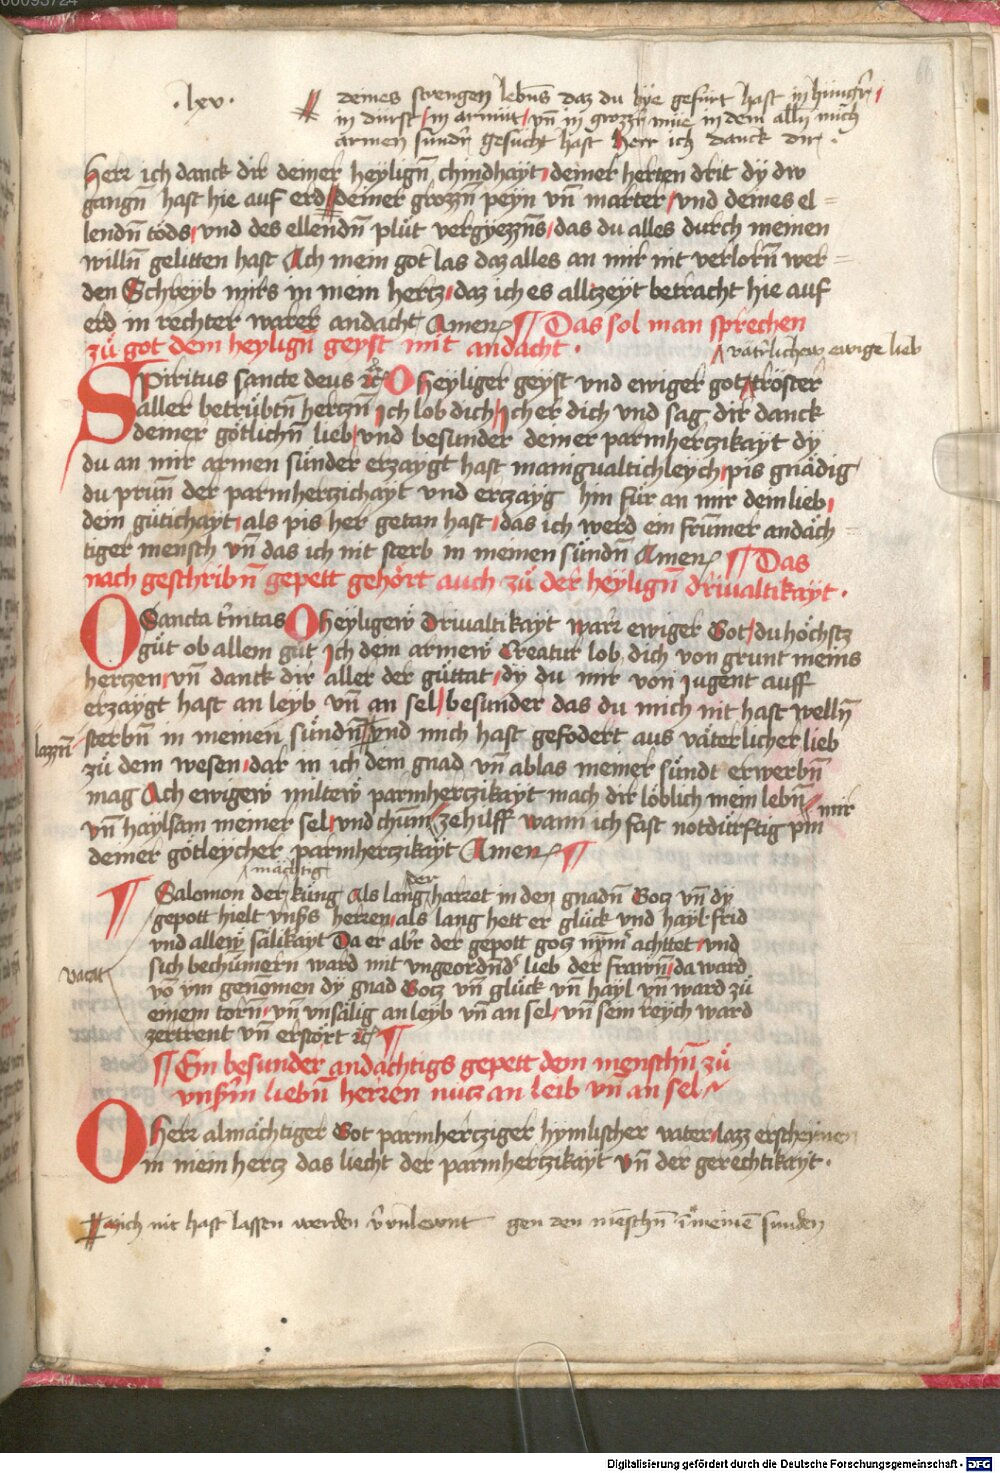 ·lxv·
deines strengen lebns daz du hye gefürt hast in hunger
in durst in armüt vn in grozzer müe in dem allm mich
armen sunder gesucht hast herr ich danck dir.
Herr ich danck dir deiner heyligñ chindhayt deiner herten drit dy dw
gangñ hast hie auf erd deiner grozzñ peyn vñ marter vnd deines el=
lendñ tods vnd des ellendñ plüt vergyezzñs das du alles durch meinen
willñ gelitten hast Ach mein got las daz alles an mir nit verlorñ wer=
den Schreyb mirs in mein hertz daz ich es alltzeyt betracht hie auf
erd in rechter warer andacht Amen ¶ Das sol man sprechen
zü got dem heyligñ geyst mit andacht .
väterlichew ewige lieb
Spiritus sancte deus etc O heyliger geyst vnd ewiger got tröster
aller betrübtñ hertzñ Ich lob dich Ich er dich vnd sag dir danck
deiner götlichñ lieb vnd besunder deiner parmhertzikayt dy
du an mir armen sünder erzaygt hast manigualtichleych pis gnädig
du prunñ der parmhertzichayt vnd ertzayg hin für an mir dein lieb
dein gütichayt als pis her getan hast das ich werd ein frumer andäch=
tiger mensch vñ das ich nit sterb in meinen sündñ Amen ¶ Das
nach geschribñ gepett gehört auch zü der heyligñ driualtikayt .
O Sancta trinitas O heyligew Driualtikayt warr ewiger Got du höchstz
güt ob allem güt Ich dein armew Creatur lob dich von grunt meins
hertzen vñ danck dir aller der güttat dy du mir von Jugent auff
erzaygt hast an leyb vñ an sel besunder das du mich nit hast wellñ
lazzñ
sterbñ in meinen sündñ vnd mich hast gefodert aus väterlicher lieb
zü dem wesen dar in ich dein gnad vñ ablas meiner sündt erwerbñ
mag Ach ewigew miltew parmhertzikayt mach dir löblich mein lebñ
mir
vñ haylsam meiner sel vnd chum ze hilff wann ich fast notdürftig pin
deiner götleycher parmhertzikayt Amen ¶
mächtig
der
¶ Salomon der küng Als lang harret in den gnadñ Gotz vñ dy
gepott hielt vnsers herren als lang hett er glück vnd hayl frid
vnd allew sälikayt Da er aber der gepott gotz nymer achttet vnd
sich bechümern ward mit vngeordnder lieb der frawñ da ward
vo ym genomen dy gnad Gotz vñ glück vñ hayl vñ ward zü
einem torñ vñ vnsälig an leyb vñ an sel vñ sein reych ward
zertrent vñ erstört etc ¶
¶ Ein besunder andächtigs gepett dem menschñ zü
vnserm liebñ herren nutz an leib vñ an sel
O Herr almächtiger Got parmhertziger hymlischer vater lazz erscheynen
in mein hertz das liecht der parmhertzikayt vñ der gerechtikayt .
mich nit hast lassen werden gen den menschñ meinen sunden
Digitalisierung gefördert durch die Deutsche Forschungsgemeinschaft - DFG